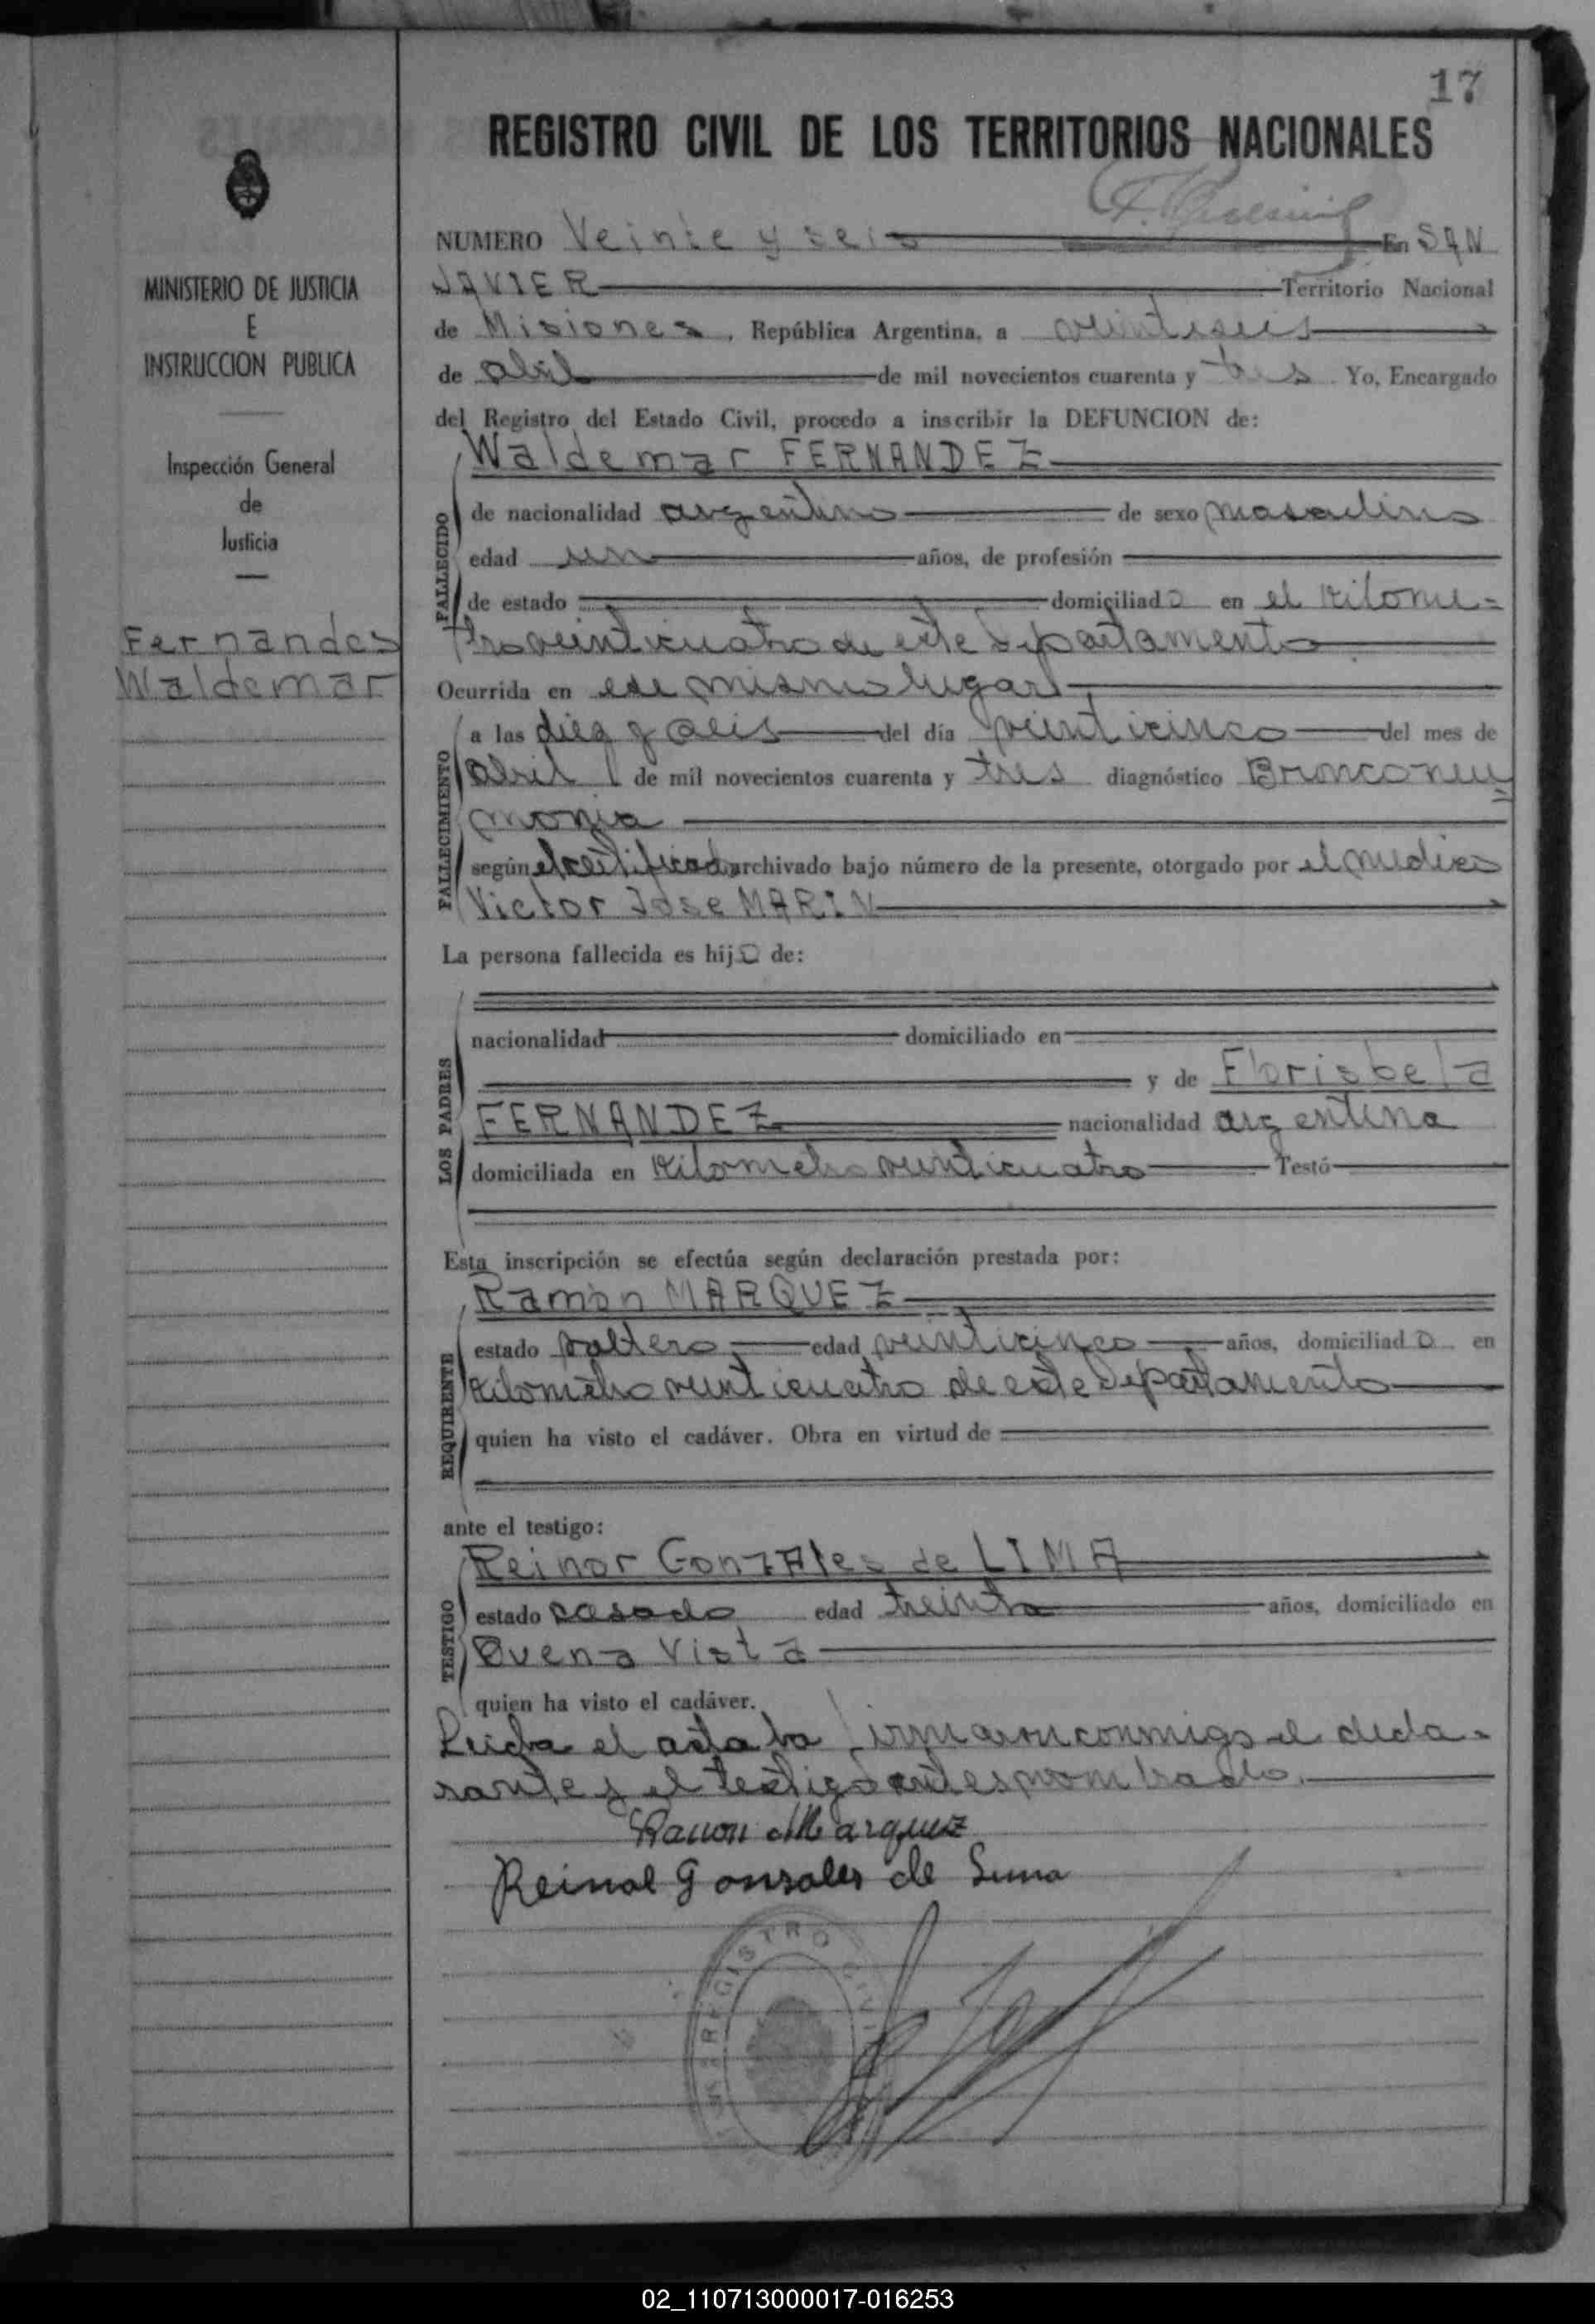 17
REGISTRO CIVIL DE LOS TERRITORIOS NACIONALES
MINISTERIO DE JUSTICIA
E
INSTRUCCION PUBLICA
Inspección General
de
Justicia
Fernandes
Waldemar
NUMERO Veinte y seis En SAN
JAVIER Territorio Nacional
de Misiones, República Argentina, a veintiseis
de abril de mil novecientos cuarenta y tres. Yo, Encargado
del Registro del Estado Civil, procedo a inscribir la DEFUNCION de:
Waldemar FERNANDEZ
FALLECIDO
de nacionalidad argentino de sexo masculino
edad un años, de profesión
de estado domiciliado en el kilome-
tro veinticuatro de este departamento
Ocurrida en ese mismo lugar
FALLECIMIENTO
a las diez y seis del día veinticinco del mes de
abril de mil novecientos cuarenta y tres diagnóstico Bronconeu
monia
según el certificado archivado bajo número de la presente, otorgado por el medico
Victor Jose MARIN
La persona fallecida es hijo de:
LOS PADRES
nacionalidad domiciliado en
y de Florisbela
FERNANDEZ nacionalidad argentina
domiciliada en kilometro veinticuatro Testó
Esta inscripción se efectúa según declaración prestada por:
Ramón MARQUEZ
REQUIRENTE
estado soltero edad veinticinco años, domiciliado en
kilometro veinticuatro de este departamento
quien ha visto el cadáver. Obra en virtud de
ante el testigo:
Reinor GonzAles de LIMA
TESTIGO
estado casado edad treinta años, domiciliado en
Buena Vista
quien ha visto el cadáver.
Leida el acta la firmaron conmigo el decla-
rante y el testigo antes nombrado.
Ramon Marquez
Reinol Gonsales de Lima
REGISTRO CIVIL
02_110713000017-016253